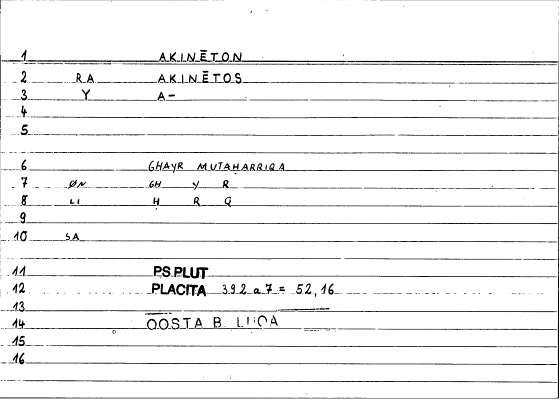 1 AKINĒTON
2 RA AKINĒTOS
3 Y A-
4
5
6 GHAYR MUTAHARRIQA
7 ØN GH Y R
8 LI H R Q
9
10 SA
11 PS.PLUT
12 PLACITA 392 a 7 = 52,16
13
14 QOSTA B. LUQA
15
16